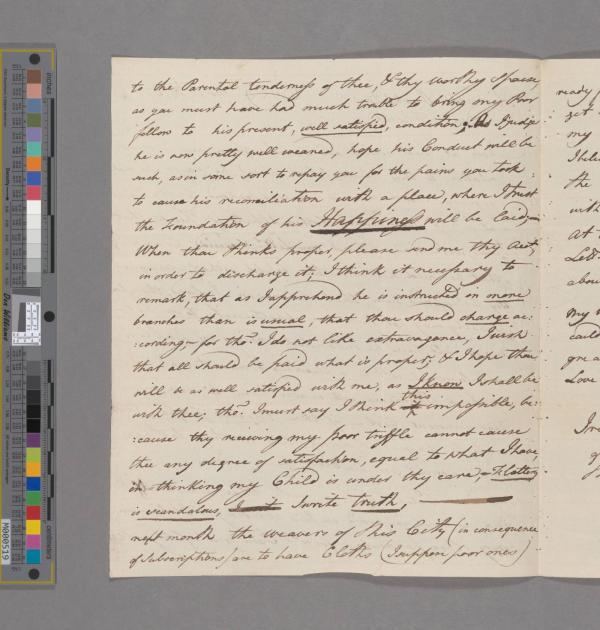 to the Parental tenderness of thee, & thy worthy Spouse
as you must have had much trouble to bring my Poor
fellow to his present, well satisfied, condition; As I judge
he is now pretty well weaned, hope his Conduct will be
such, as in some sort to repay you for the pains you took
to cause his reconciliation with a place, where I trust
the Foundation of his Happiness will be laid,
When thou thinks proper, please send me thy Acct,
in order to discharge it; I think it necessary to
remark, that as I apprehend he is instructed in more
branches than is usual, that thou should charge ac:
:cording,- for tho' I do not like extravagance, I wish
that all should be paid what is proper; & I hope thou
will be as well satisfied with me, as I know I shall be
with thee; tho' I must say I think this impossible, be:
:cause thy receiving my poor triffle cannot cause
thee any degree of satisfaction, equal to what I have
in thinking my Child is under thy care,- Flattery
is scandalous, I write truth,
next month the weavers of this City (in consequence
of Subscriptions) are to have Cloths (I suppose poor ones)
ready
yet
my
the
with
at
abou
my
could
grea
Love
inches
centimetres
Don Williams
M000519